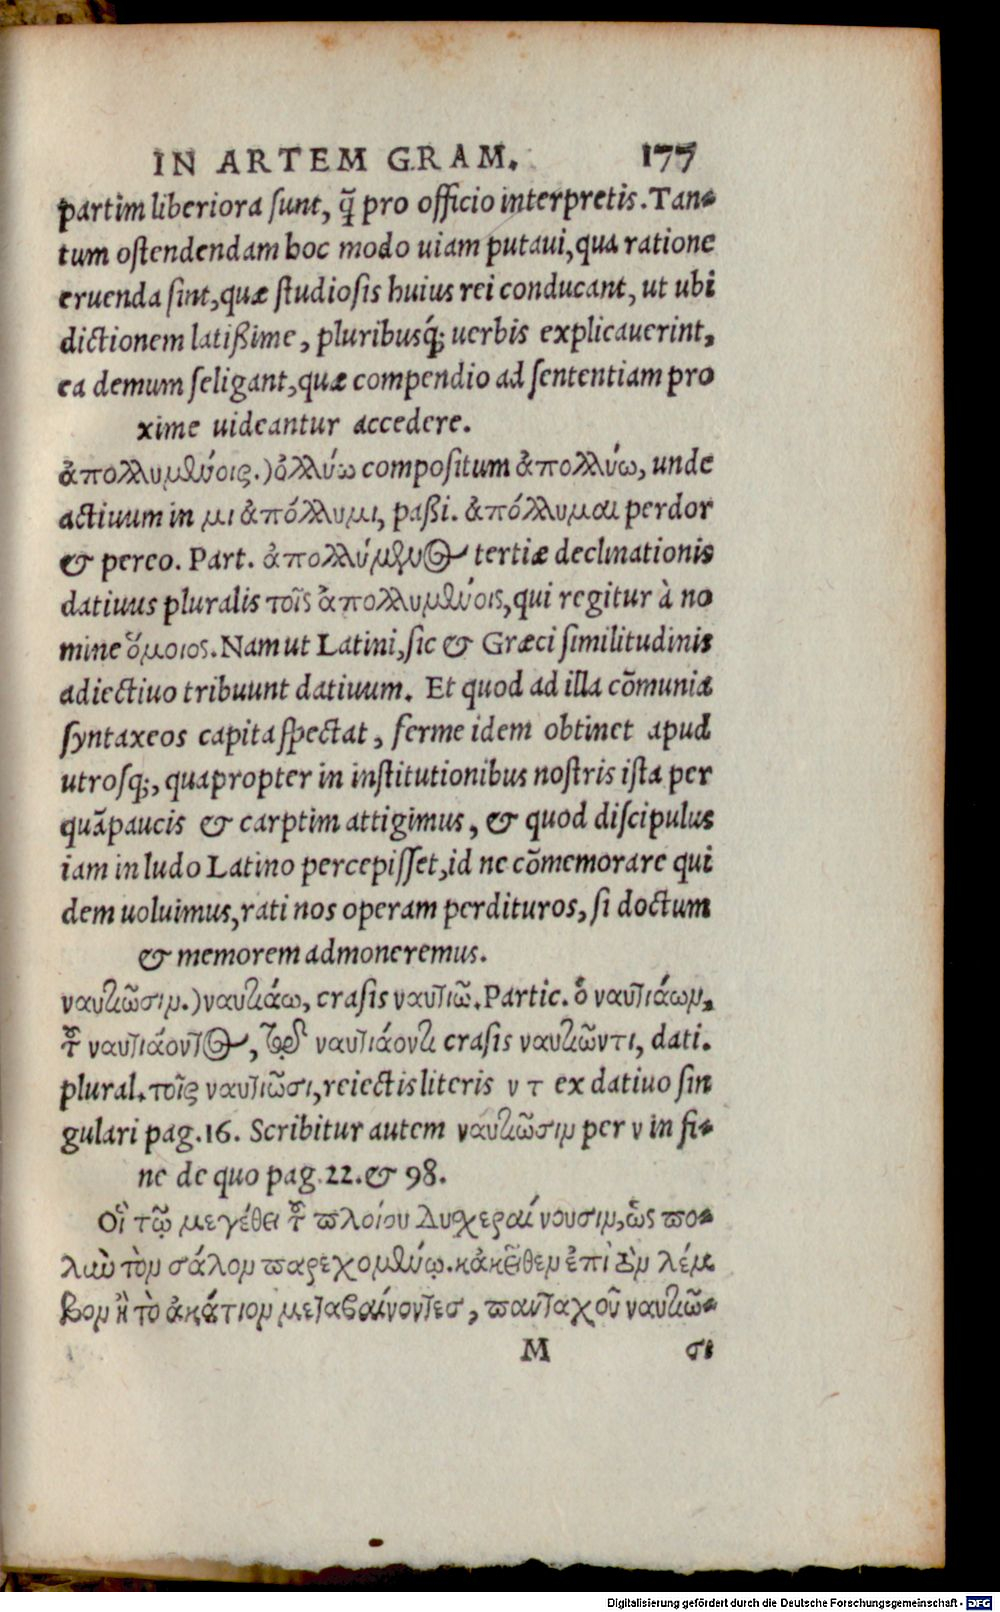 IN ARTEM GRAM. 177
partim liberiora sunt, q̃ pro officio interpretis. Tan-
tum ostendendam hoc modo uiam putaui, qua ratione
eruenda sint, quæ studiosis huius rei conducant, ut ubi
dictionem latißime, pluribusq́; uerbis explicauerint,
ea demum seligant, quæ compendio ad sententiam pro
xime uideantur accedere.
ἀπολλυμένοις.) ὀλλύω compositum ἀπολλύω, unde
actiuum in μι ἀπόλλυμι, paßi. ἀπόλλυμαι perdor
& pereo. Part. ἀπολλύμενος tertiæ declinationis
datiuus pluralis τοῖς ἀπολλυμένοις, qui regitur à no
mine ὅμοιος. Nam ut Latini, sic & Græci similitudinis
adiectiuo tribuunt datiuum. Et quod ad illa cõmunia
syntaxeos capita spectat, ferme idem obtinet apud
utrosq;, quapropter in institutionibus nostris ista per
quãpaucis & carptim attigimus, & quod discipulus
iam in ludo Latino percepisset, id ne cõmemorare qui
dem uoluimus, rati nos operam perdituros, si doctum
& memorem admoneremus.
ναυτιῶσιν.) ναυτιάω, crasis ναυτιῶ. Partic. ὁ ναυτιάων,
τοῦ ναυτιάοντος, τῷ ναυτιάοντι crasis ναυτιῶντι, dati.
plural. τοῖς ναυτιῶσι, reiectis literis ν τ ex datiuo sin
gulari pag. 16. Scribitur autem ναυτιῶσιν per ν in fi-
ne de quo pag. 22. & 98.
Οἳ τῷ μεγέθει τοῦ πλοίου δυσχεραίνουσιν, ὡς πο-
λὺν τὸν σάλον παρεχομένῳ. κἀκεῖθεν ἐπὶ τὸν λέμ
βον ἢ τὸ ἀκάτιον μεταβαίνοντες, πανταχοῦ ναυτιῶ-
M σι
Digitalisierung gefördert durch die Deutsche Forschungsgemeinschaft - DFG